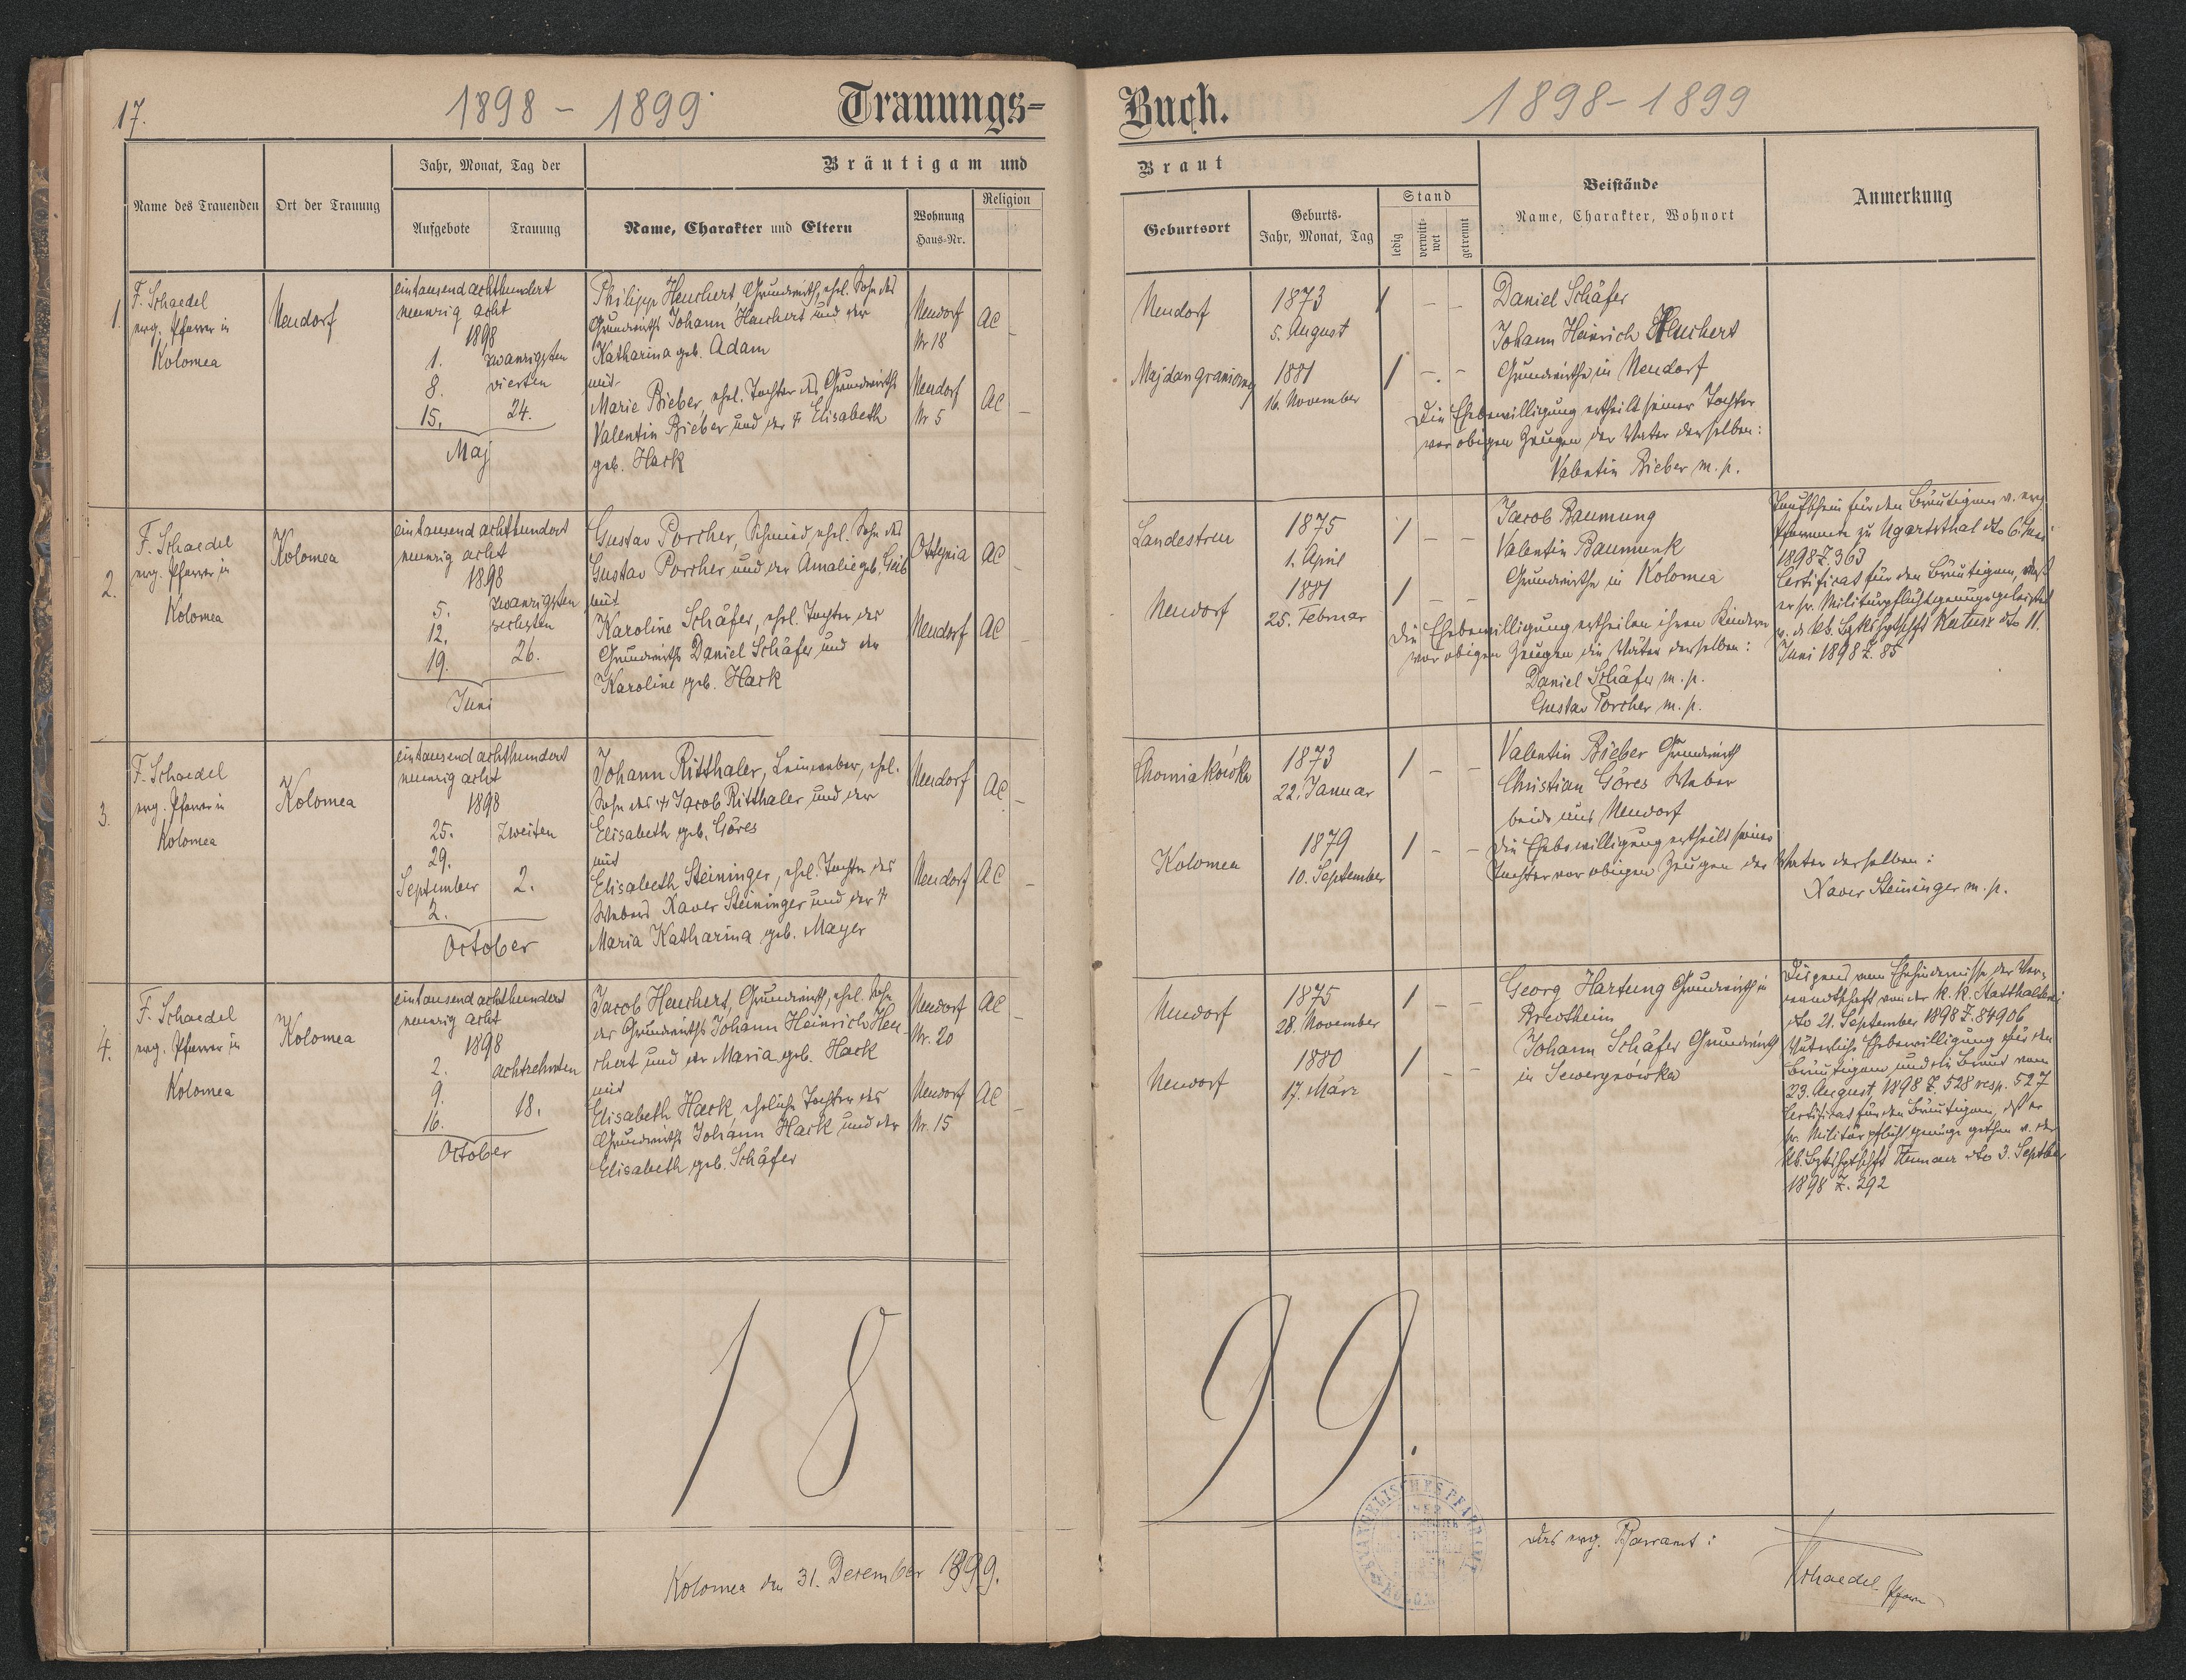 17.
1898 - 1899
Trauungs-
Name des Trauenden
Ort der Trauung
Jahr, Monat, Tag der
Aufgebote
Trauung
Bräutigam und
Name, Charakter und Eltern
Wohnung
Haus-Nr.
Religion
1.
F. Schaedel
evg. Pfarrer in
Kolomea
Neudorf
eintausend achthundert
neunzig acht
1898
1. zwanzigsten
8. vierten
15. 24.
Maj
Philipp Heuchert, Grundwirth, ehel. Sohn des
Grundwirths Johann Heuchert und der
Katharina geb. Adam
mit
Marie Bieber, ehel. Tochter des Grundwirths
Valentin Bieber und der † Elisabeth
geb. Hack
Neudorf
Nr 18
AC
Neudorf
Nr 5
AC
2.
F. Schaedel
evg. Pfarrer in
Kolomea
Kolomea
eintausend achthundert
neunzig acht
1898
5. zwanzigsten
12. sechsten
19. 26.
Juni
Gustav Porcher, Schmied, ehel. Sohn des
Gustav Porcher und der Amalie geb. Geib
mit
Karoline Schäfer, ehel. Tochter des
Grundwirths Daniel Schäfer und der
Karoline geb. Hack
Ottynia
AC
Neudorf
AC
3.
F. Schaedel
evg. Pfarrer in
Kolomea
Kolomea
eintausend achthundert
neunzig acht
1898
25. zweiten
29.
September 2.
2.
October
Johann Ritthaler, Leinweber, ehel.
Sohn des † Jacob Ritthaler und der
Elisabeth geb. Göres
mit
Elisabeth Steininger, ehel. Tochter des
Webers Xaver Steininger und der †
Maria Katharina geb. Mayer
Neudorf
AC
Neudorf
AC
4.
F. Schaedel
evg. Pfarrer in
Kolomea
Kolomea
eintausend achthundert
neunzig acht
1898
2. achtzehnten
9.
16. 18.
October
Jacob Heuchert, Grundwirth, ehel. Sohn
des Grundwirths Johann Heinrich Heu-
chert und der Maria geb. Hack
mit
Elisabeth Hack, eheliche Tochter des
Grundwirths Johann Hack und der
Elisabeth geb. Schäfer
Neudorf
Nr. 20
AC
Neudorf
Nr. 15
AC
18
Kolomea den 31. Dezember 1899.
Buch.
1898-1899
Braut
Geburtsort
Geburts-
Jahr, Monat, Tag
Stand
ledig
verwitt-
wet
getrennt
Beistände
Name, Charakter, Wohnort
Anmerkung
Neudorf
1873
5. August
Majdan graniczny
1881
16. November
Daniel Schäfer
Johann Heinrich Heuchert
Grundwirthe in Neudorf
Die Ehebewilligung ertheilt seiner Tochter
vor obigen Zeugen der Vater derselben:
Valentin Bieber m. p.
Landestreu
1875
1. April
Neudorf
1881
25. Februar
Jacob Baumung
Valentin Baumunk
Grundwirthe in Kolomea
Die Ehebewilligung ertheilen ihren Kindern
vor obigen Zeugen die Väter derselben:
Daniel Schäfer m. p.
Gustav Porcher m. p.
Taufschein für den Bräutigam v. evg.
Pfarramte zu Ugartsthal dto 6. Mai
1898 Z. 363
Certificat für den Bräutigam, daß
er sr. Militärpflicht genüge geleistet
v. d. kk. Bzkshptschft Kalusz dto 11.
Juni 1898 Z. 85
Chomiakówka
1873
22. Januar
Kolomea
1879
10. September
Valentin Bieber Grundwirth
Christian Göres Weber
beide aus Neudorf
Die Ehebewilligung ertheilt seiner
Tochter vor obigen Zeugen der Vater derselben:
Xaver Steininger m. p.
Neudorf
1875
28. November
Neudorf
1880
17. März
Georg Hartung Grundwirth in
Brectheim
Johann Schäfer Grundwirth
in Sewerynówka
Dispens vom Ehehindernisse der Ver-
wandtschaft von der k. k. Statthalterei
dto 21. September 1898 Z. 84906
Väterliche Ehebewilligung für den
Bräutigam und die Braut vom
23. August 1898 Z. 528 resp. 527
Certificat für den Bräutigam, daß er
sr. Militärpflicht genüge gethan v. der
kk. Bzkshptschft dto 3. Septber
1898 Z. 292
99.
EVANGELISCHES PFARRAMT
das evg. Pfarramt:
Schaedel Pfarrer